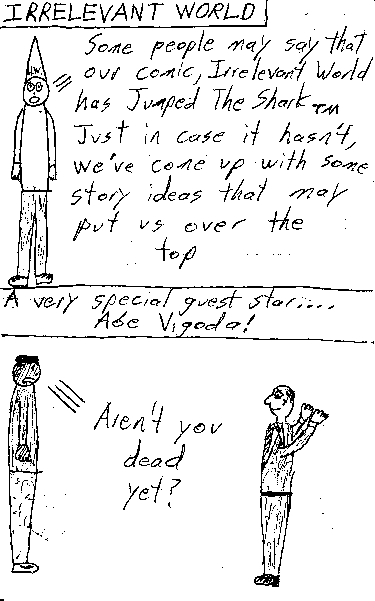 IRRELEVANT WORLD
Some people may say that
our comic, Irrelevant World
has Jumped The Shark TM
Just in case it hasn't,
we've come up with some
story ideas that may
put us over the
top
A very special guest star....
Abe Vigoda!
Aren't you
dead
yet?